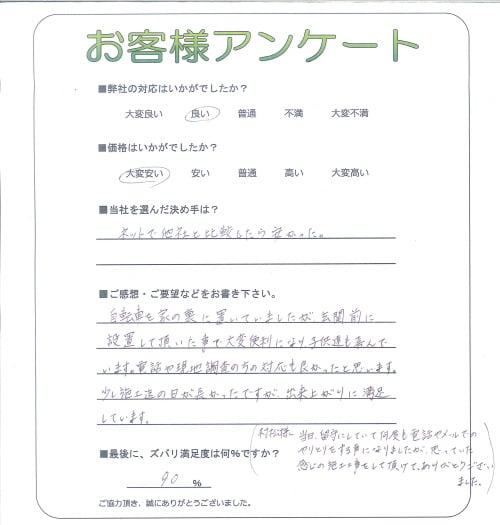 お客様アンケート
■弊社の対応はいかがでしたか？
大変良い 良い 普通 不満 大変不満
■価格はいかがでしたか？
大変安い 安い 普通 高い 大変高い
■当社を選んだ決め手は？
ネットで他社と比較したら安かった。
■ご感想・ご要望などをお書き下さい。
自転車を家の裏に置いていましたが玄関前に
設置して頂いた事で大変便利になり子供達も喜んで
います。電話や現地調査の方の対応も良かったと思います。
少し施工迄の日が長かったですが、出来上がりに満足
しています。
■最後に、ズバリ満足度は何%ですか？
90 %
(村松様に 当日、留守にしていて何度も電話やメールでの
やりとりをする事になりましたが、思っていた
感じの施工工事をして頂けて、ありがとうござい
ました。)
ご協力頂き、誠にありがとうございました。